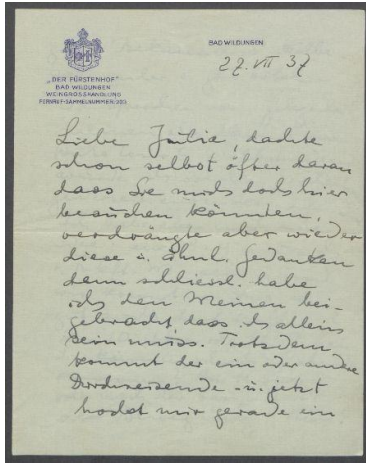 BAD WILDUNGEN
27. VII 37
„DER FÜRSTENHOF"
BAD WILDUNGEN
WEINGROSSHANDLUNG
FERNRUF-SAMMELNUMMER
Liebe Julia, dachte
schon selbst öfter daran
dass Sie mich doch hier
besuchen könnten,
verdrängte aber wieder
diese u. ähnl. Gedanken
denn schliessl. habe
ich den Meinen bei-
gebracht, dass ich allein
sein muss. Trotzdem
kommt der ein oder andre
Durchreisende u. jetzt
hockt mir gerade ein